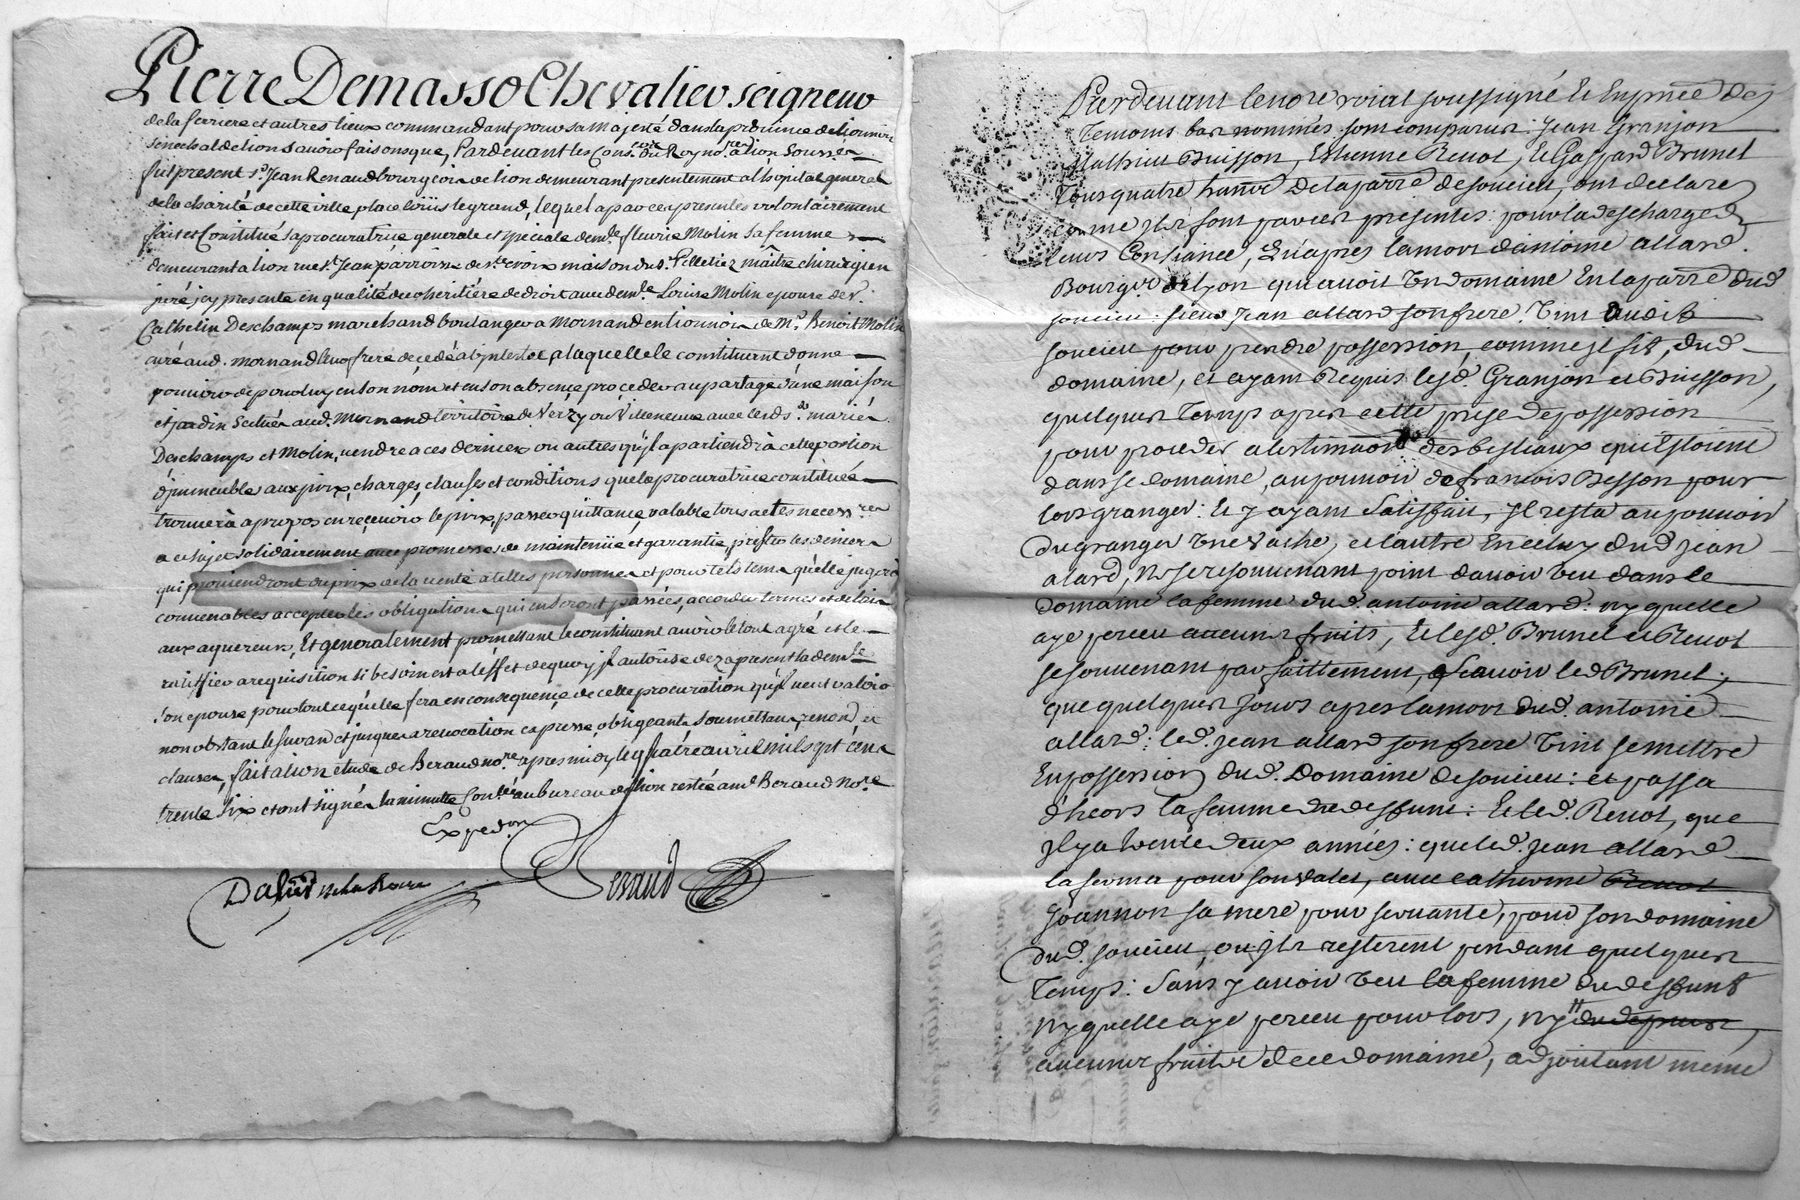 Pierre Demasso Chevalier seigneur
de la ferriere et autres lieux commandant pour sa Majesté dans la province de lionnois
Senechal de lion savoir faisons que, Pardevant les Cons.ers du Roy no.res a lion Souss.es
fut present s.r Jean Renaud bourgeois de lion demeurant presentement a l'hopital general
de la charité de cette ville place loüis le grand, lequel a par ces presentes volontairement
fait et Constitué sa procuratrice generale et speciale dem.lle fleurie Molin sa femme
demeurant a lion rue s.t Jean parroisse de s.te croix maison du s.r Pelletiez maître chirurgien
juré icy presente en qualité de coheritiére de droit avec dem.lle Louise Molin epouse de s.r
Cathelin Deschamps marchand boulanger a Mornand en lionnois de M.r Benoit Molin
curé aud. Mornand leur frere decedé abintestat a laquelle le constituant donne
pouvoir de pour luy en son nom et en son absence proceder au partage d'une maison
et jardin scitués aud. Mornand territoire de Verzy ou Villeneuve avec lesd. s.rs mariés
Deschamps et Molin, vendre a ces derniers ou autres qu'il apartiendrà cette portion
d'jmmeuble aux prix, charges, clauses et conditions que la procuratrice constituée
trouverà a propos en recevoir le prix, passer quittance valable tous actes necess.res
a ce sujet solidairement avec promesses de maintenüe et garantie, prester les deniers
qui proviendront du prix de la vente a telles personnes et pour tels tems qu'elle jugera
convenables accepter les obligations qui en seront passées, accorder termes et delais
aux aquereurs, Et generalement promettant le constituant avoir le tout agré et le
ratiffier a requisition si besoin est a l'effet de quoy jl autorise dez a present lad. dem.lle
son epouse pour tout ce qu'elle fera en consequence de cette procuration qu'jl veut valoir
nonobstant le suran et jusques a revocation expresse, obligeant, soumettant, renond. et
clauses, fait a lion étude de Beraud no.re apres midy le quatre avril mil sept cent
trente six et ont signé a la minutte Con.lée au bureau de lion restée aud. Beraud no.re
Exped.on
Beraud
Pardevant le no.re roial soussigné Et En p.nce Des
Temoins bas nommés sont comparus: Jean Granjon
Mathieu Buisson, Estienne Revot, Et Gaspard Brunet
Tous quatre hans de la parre de soucieu, ont declaré
comme jls font par ces presentes: pour la descharge de
leurs Consiance, Qu'apres la mort d'antoine allard
Bourg.s de lyon qui avoit Un domaine En la parre dud
soucieu: sieur Jean allard son frere Vint audit
soucieu pour prendre possession, comme jl fit, dud
domaine, et ayant Requis lesd. Granjon et Buisson,
quelques Temps apres cette prise de possession
pour proceder a lestimaon des bestiaux qui Estoient
dans le domaine, au pouvoir de francois Besson pour
lors granger: Et y ayant satisfait, jl resta au pouvoir
du granger Une vache, et lautre En celuy dud Jean
alard, Ne se resouvenant point davoir veu dans le
Domaine la femme dud. antoine allard: ny quelle
aye perceu aucuns fruits, Et lesd. Brunet et Revot
se souvenant parfaittement, scavoir led Brunet:
que quelques jours apres la mort dud. antoine
allard: led. jean allard son frere Vint se mettre
En possession dud. Domaine de soucieu: et passa
d'heors la femme du deffunt: Et led. Revot, que
jl y a trente deux années: que led. jean allard
lafferma pour son valet, avec catherine Revot
Joannon sa mere pour servante, pour son domaine
dud. soucieu, ou jls resterent pendant quelques
Temps: Sans y avoir veu la femme du deffunt
ny quelle aye perceu pour lors, ny du depuis,
aucuns fruits de ce domaine, adjoutant meme